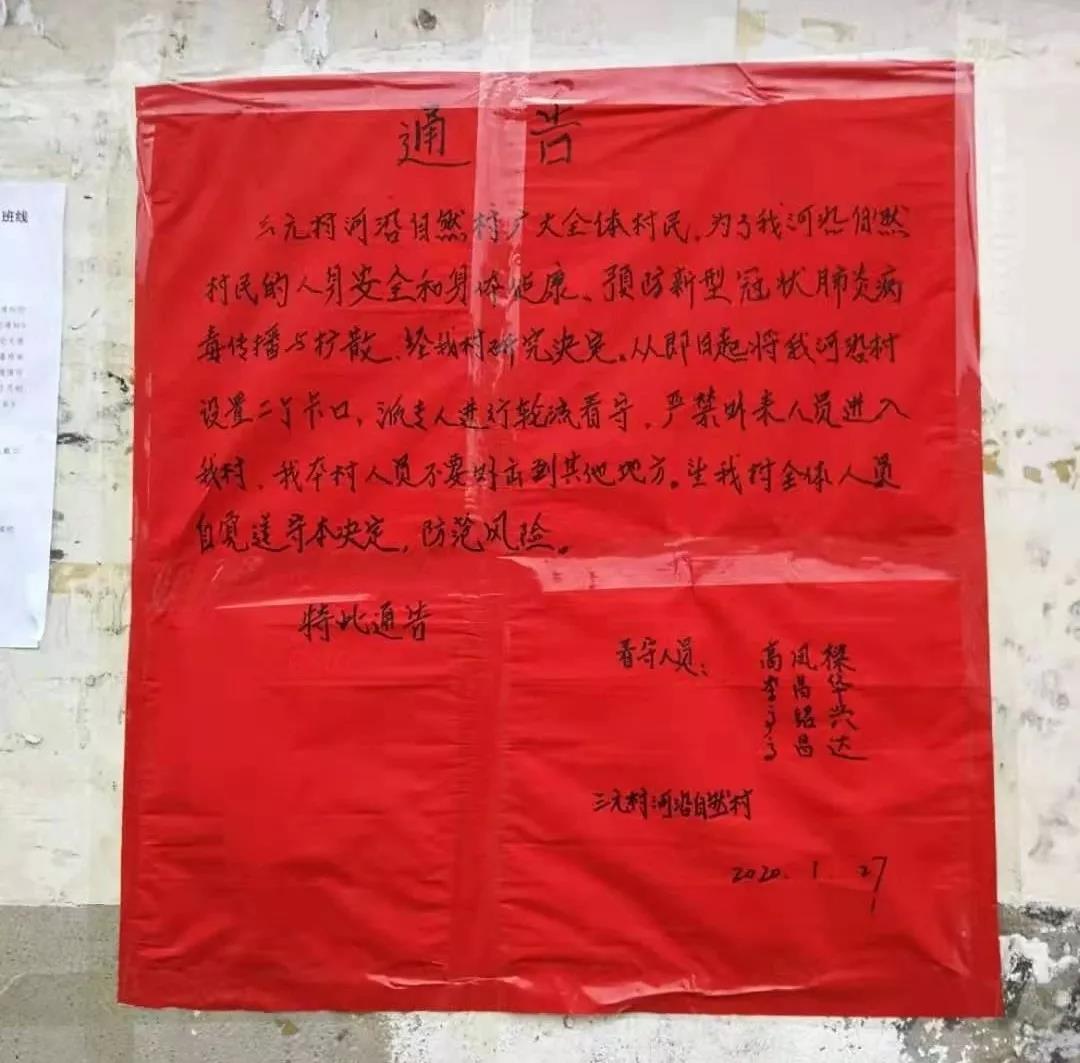 通告
三元村河沿自然村广大全体村民,为了我河沿自然
村民的人身安全和身体健康、预防新型冠状肺炎病
毒传播与扩散,经我村研究决定。从即日起将我河沿村
设置二个卡口,派专人进行轮流看守,严禁外来人员进入
我村,我本村人员不要外出到其他地方。望我村全体人员
自觉遵守本决定,防范风险。
特此通告
看守人员:高凤樑
李昌华
高绍兴
高昌达
三元村河沿自然村
2020.1.27
班线